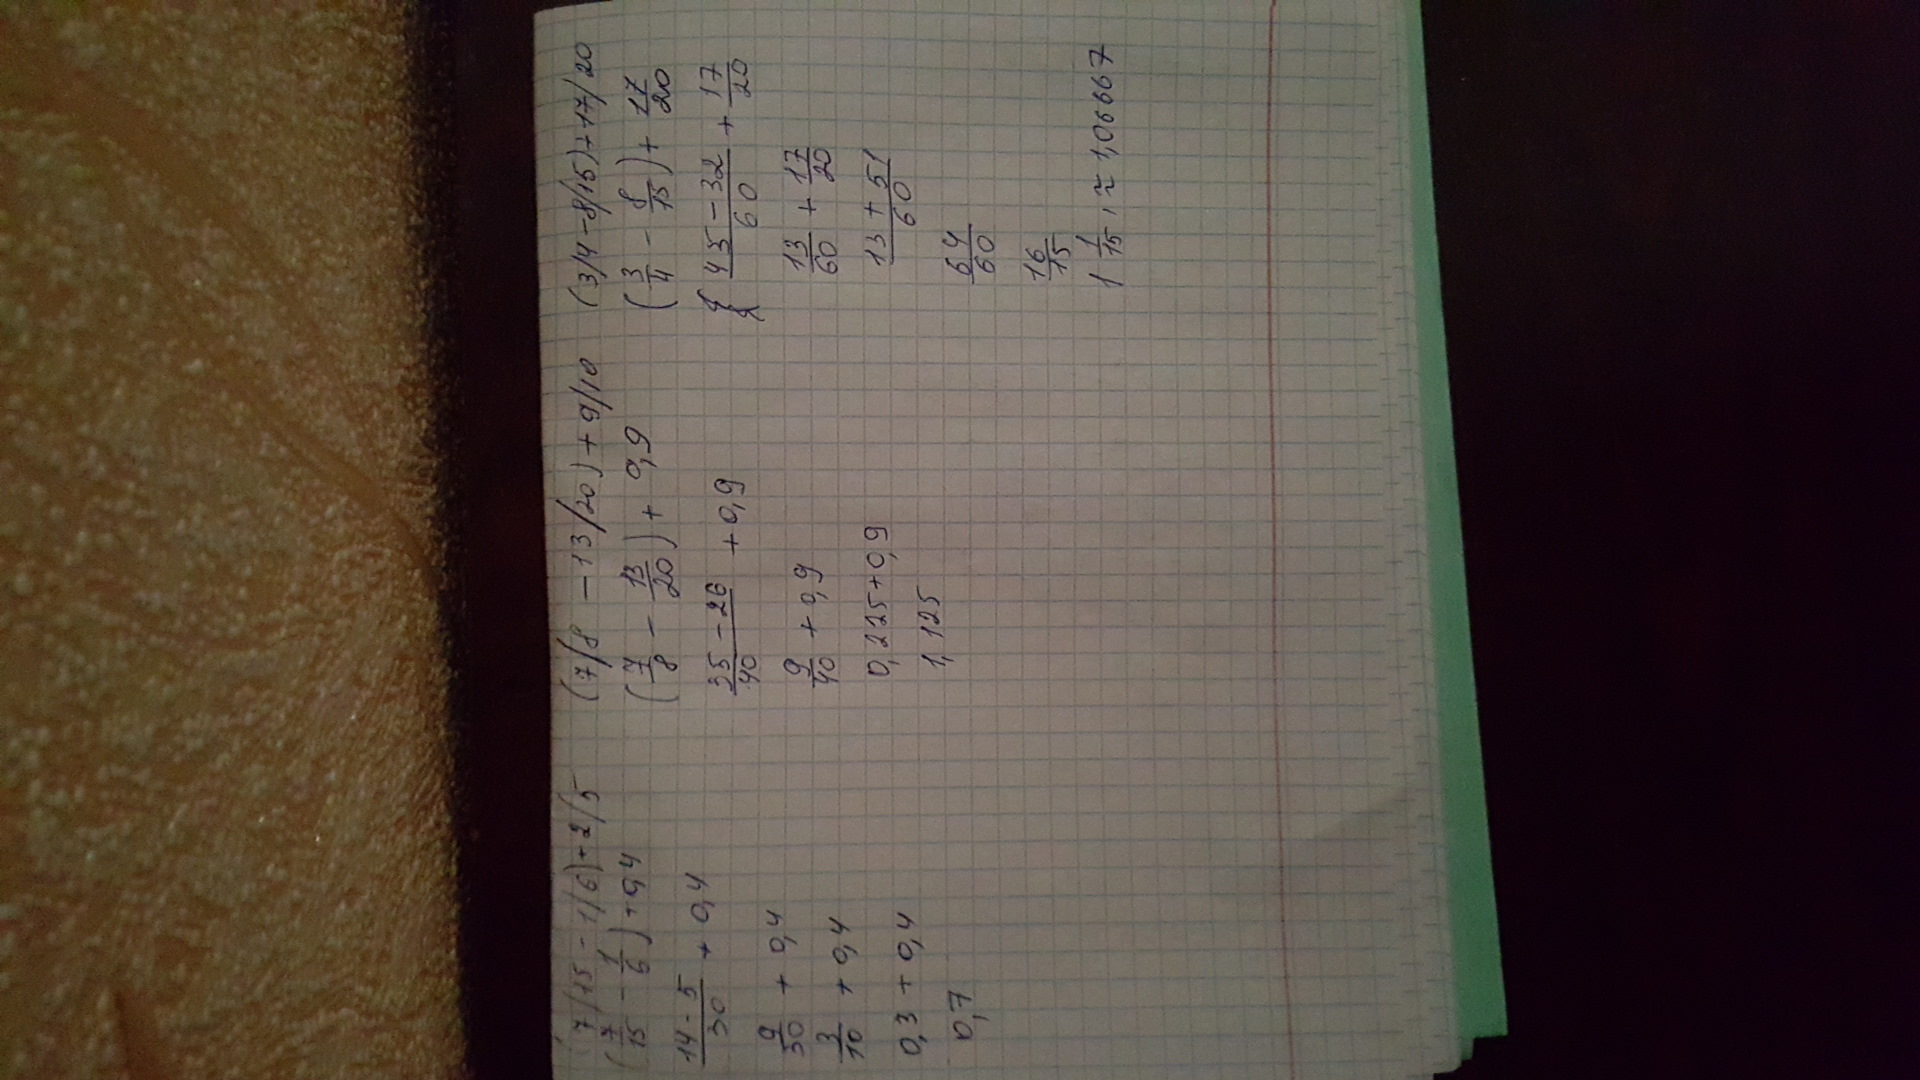 (7/15 - 1/6) + 2/5
(7/15 - 1/6) + 0,4
14 - 5/30 + 0,4
9/30 + 0,4
3/10 + 0,4
0,3 + 0,4
0,7
(7/8 - 13/20) + 9/10
(7/8 - 13/20) + 0,9
35 - 26/40 + 0,9
9/40 + 0,9
0,225 + 0,9
1,125
(3/4 - 8/15) + 17/20
(3/4 - 8/15) + 17/20
45 - 32/60 + 17/20
13/60 + 17/20
13 + 51/60
64/60
16/15
1 1/15, ≈ 1,066667